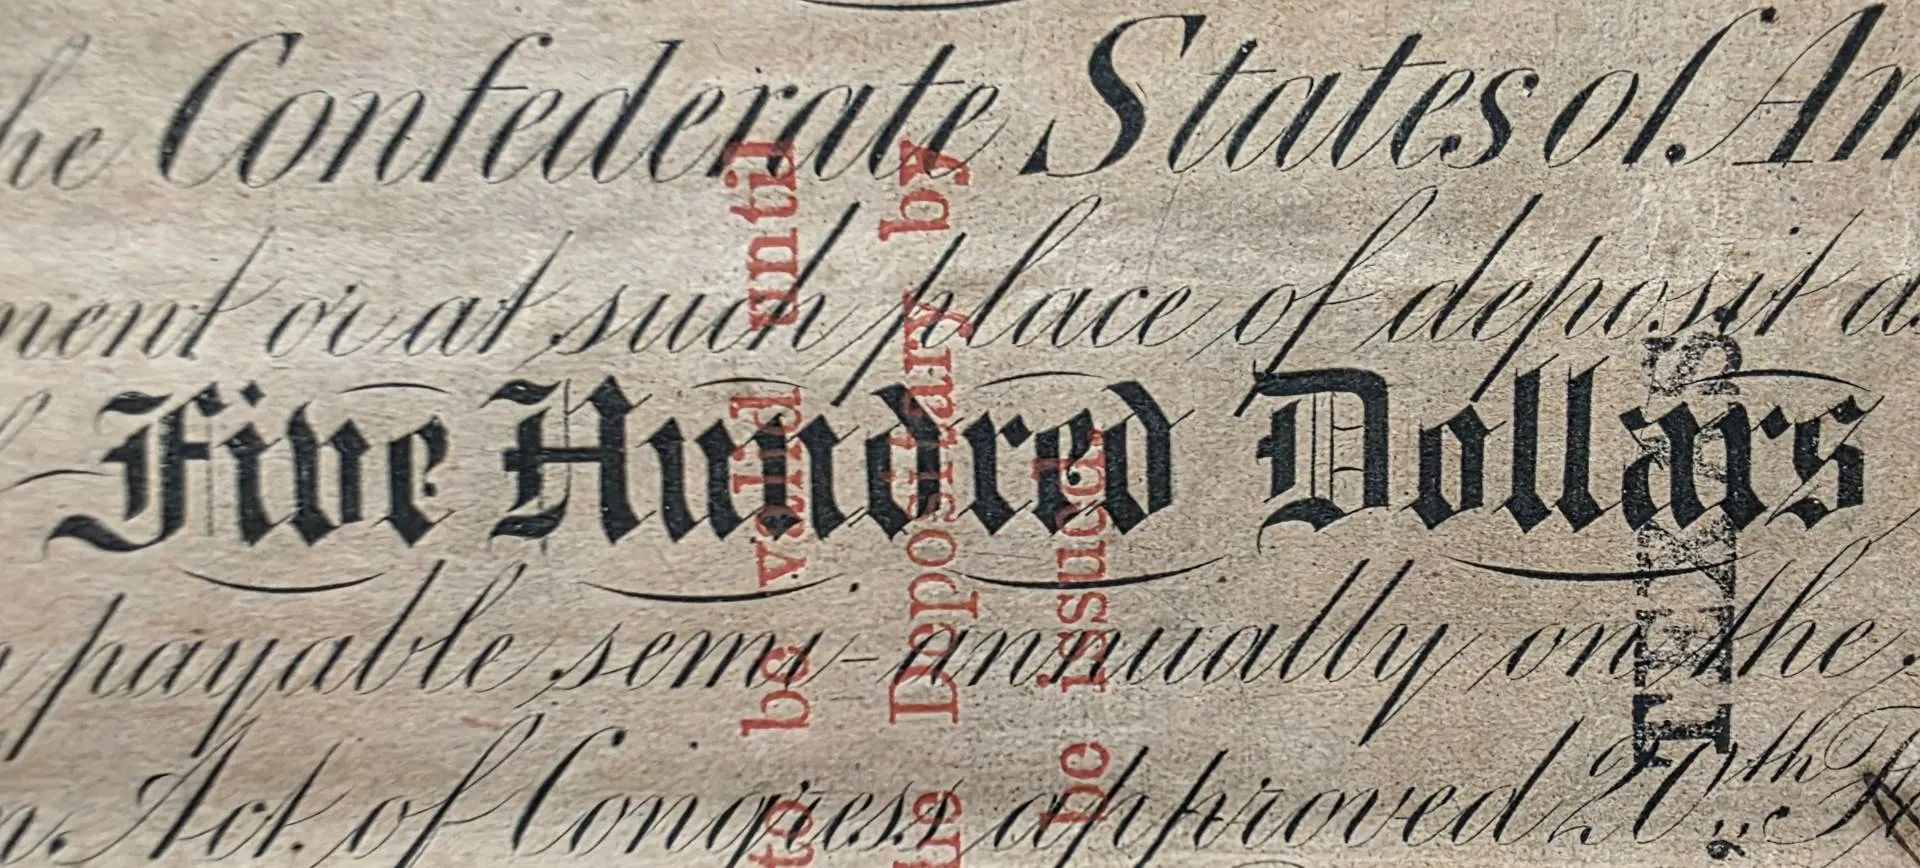 he Confederate States of Am
ment or at such place of deposit as
Five Hundred Dollars
payable semi-annually on the
Act of Congress approved 20th
to be valid until
he Depositary by
be issued.
TEXAS